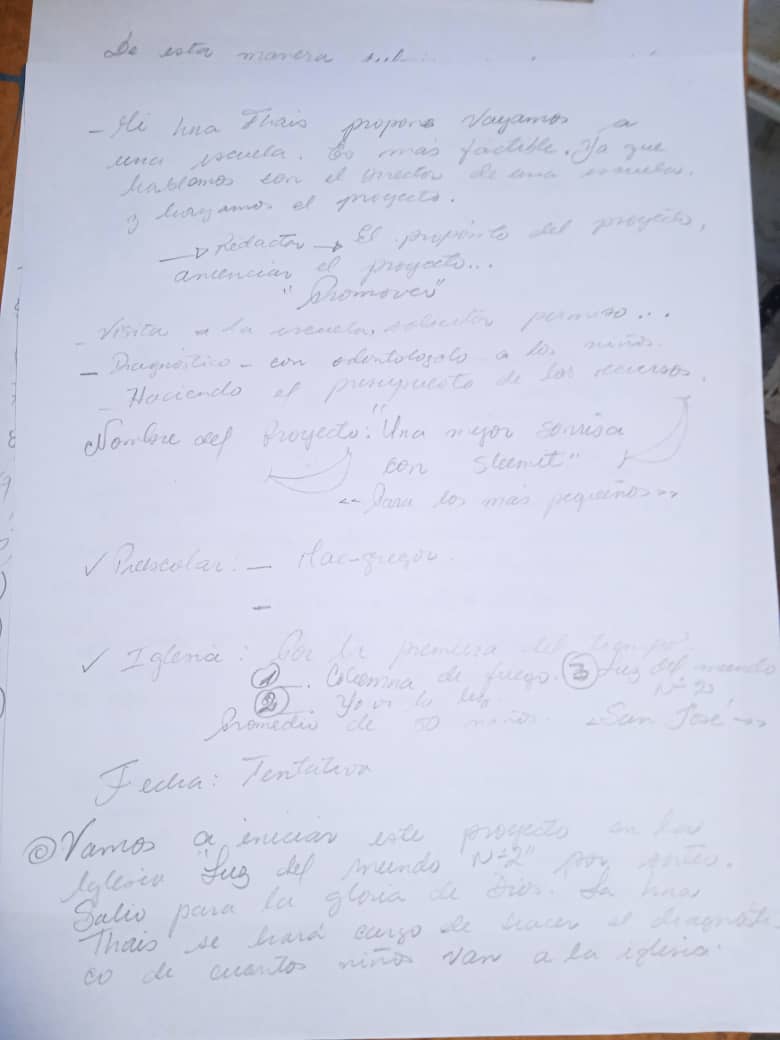 De esta manera
- Mi hna Thais propone vayamos a
una escuela. Es más factible. Ya que
hablamos con el director de una escuela.
y hagamos el proyecto.
→ Redactar → El propósito del proyecto,
anunciar el proyecto...
"Promover"
- Visita a la escuela, solicitar permiso...
- Diagnóstico - con odontólogo a los niños.
- Haciendo el presupuesto de los recursos.
Nombre del Proyecto: "Una mejor sonrisa
con Steemit"
<<Para los más pequeños>>
✓ Preescolar: - Mac-gregor.
-
✓ Iglesia: Por la premura del tiempo.
① Columna de fuego. ③ Luz del mundo
N=2
② Yo vi la luz
Promedio de 50 niños. <<San José>>
Fecha: Tentativa
Vamos a iniciar este proyecto en la
Iglesia "Luz del mundo N=2" por sorteo.
Salió para la gloria de Dios. La hna
Thais se hará cargo de hacer el diagnósti-
co de cuantos niños van a la iglesia.